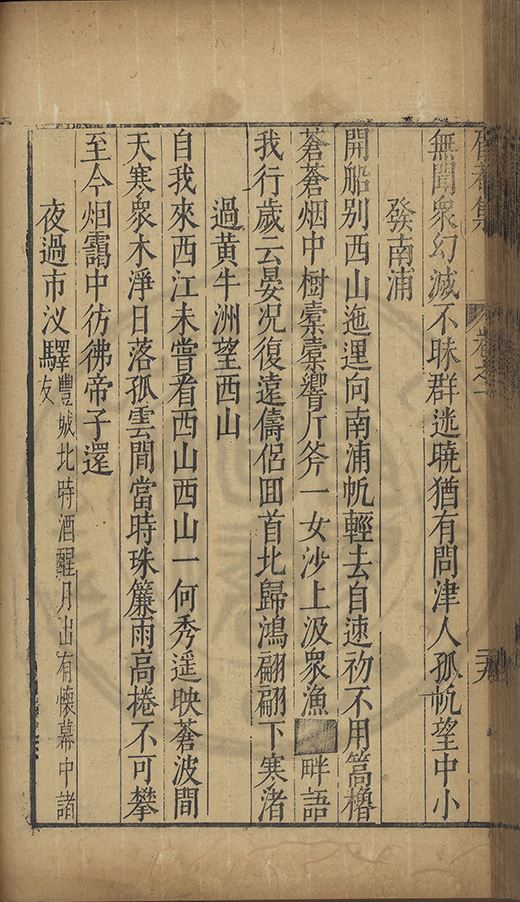 無聞衆幻滅不昧群迷曉猶有問津人孤帆望中小
發南浦
開船別西山迤邐向南浦帆輕去自速初不用篙櫓
蒼蒼烟中樹橐橐響斤斧一女沙上汲衆漁畔語
我行歲云晏况復遠儔侣囬首北歸鴻翩翩下寒渚
過黃牛洲望西山
自我來西江未嘗看西山西山一何秀遥映蒼波間
天寒衆木淨日落孤雲閒當時珠簾雨高捲不可攀
至今烟靄中彷彿帝子還
夜過市汊驛豐城北時酒醒月出有懷幕中諸
友